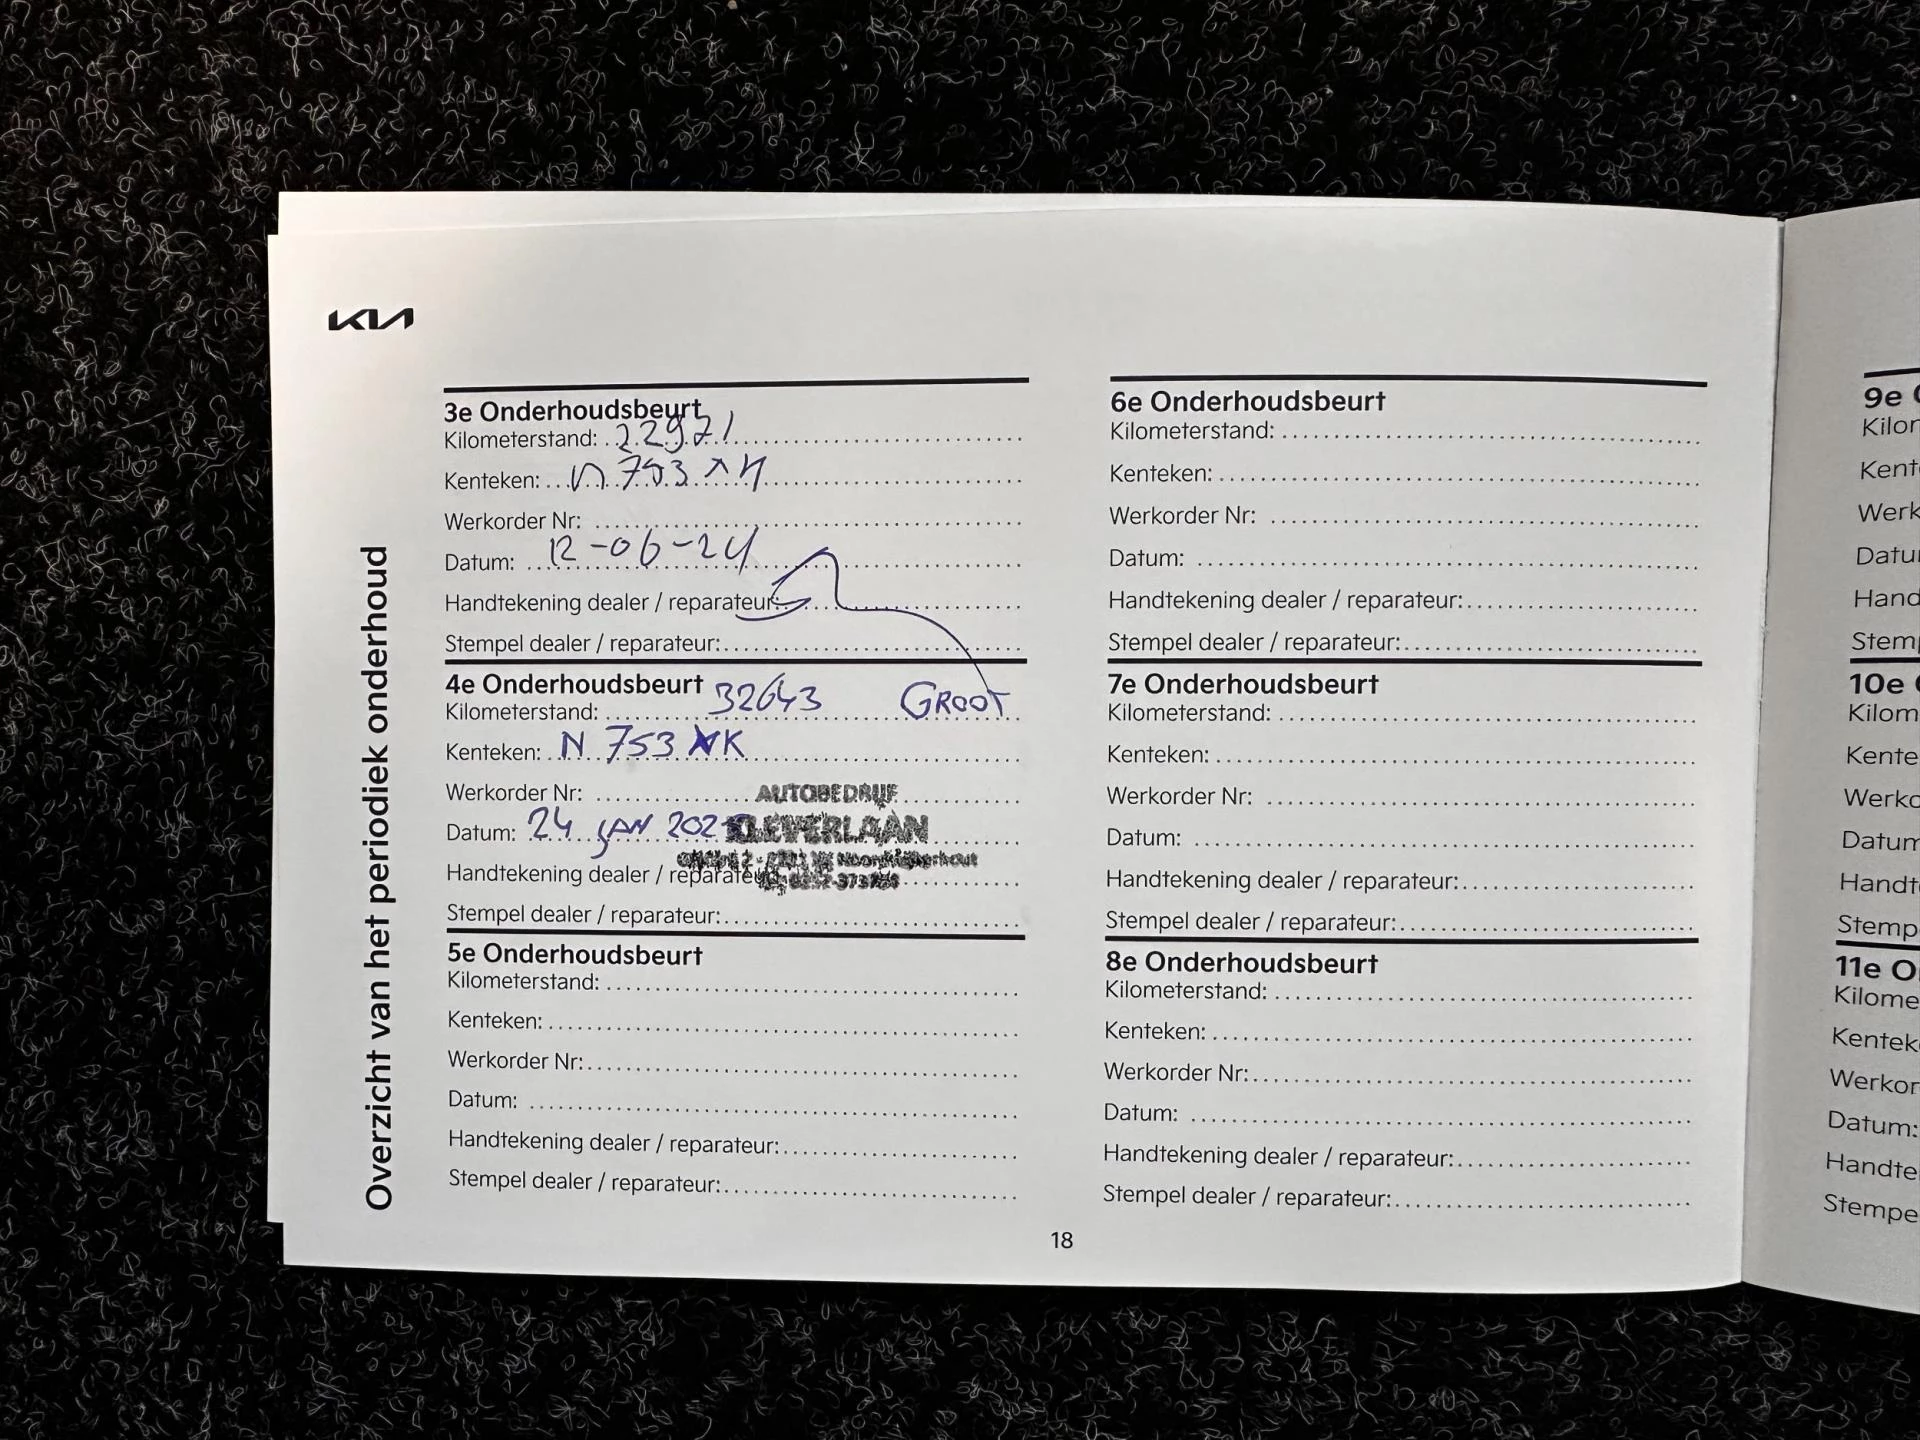 KIA
Overzicht van het periodiek onderhoud
3e Onderhoudsbeurt
Kilometerstand: 22971
Kenteken: N 753
Werkorder Nr:
Datum: 12-06-24
Handtekening dealer / reparateur:
Stempel dealer / reparateur:
4e Onderhoudsbeurt
Kilometerstand: 32643 GROOT
Kenteken: N 753 XK
Werkorder Nr:
AUTOBEDRIJF
Datum: 24 JAN 202
KLEVERLAAN
Noordwijkerhout
Handtekening dealer / reparateur:
Stempel dealer / reparateur:
5e Onderhoudsbeurt
Kilometerstand:
Kenteken:
Werkorder Nr:
Datum:
Handtekening dealer / reparateur:
Stempel dealer / reparateur:
6e Onderhoudsbeurt
Kilometerstand:
Kenteken:
Werkorder Nr:
Datum:
Handtekening dealer / reparateur:
Stempel dealer / reparateur:
7e Onderhoudsbeurt
Kilometerstand:
Kenteken:
Werkorder Nr:
Datum:
Handtekening dealer / reparateur:
Stempel dealer / reparateur:
8e Onderhoudsbeurt
Kilometerstand:
Kenteken:
Werkorder Nr:
Datum:
Handtekening dealer / reparateur:
Stempel dealer / reparateur:
18
9e O
Kilor
Kent
Werk
Datu
Hand
Stem
10e
Kilom
Kente
Werko
Datum
Handt
Stemp
11e O
Kilome
Kentek
Werkor
Datum:
Handte
Stempe